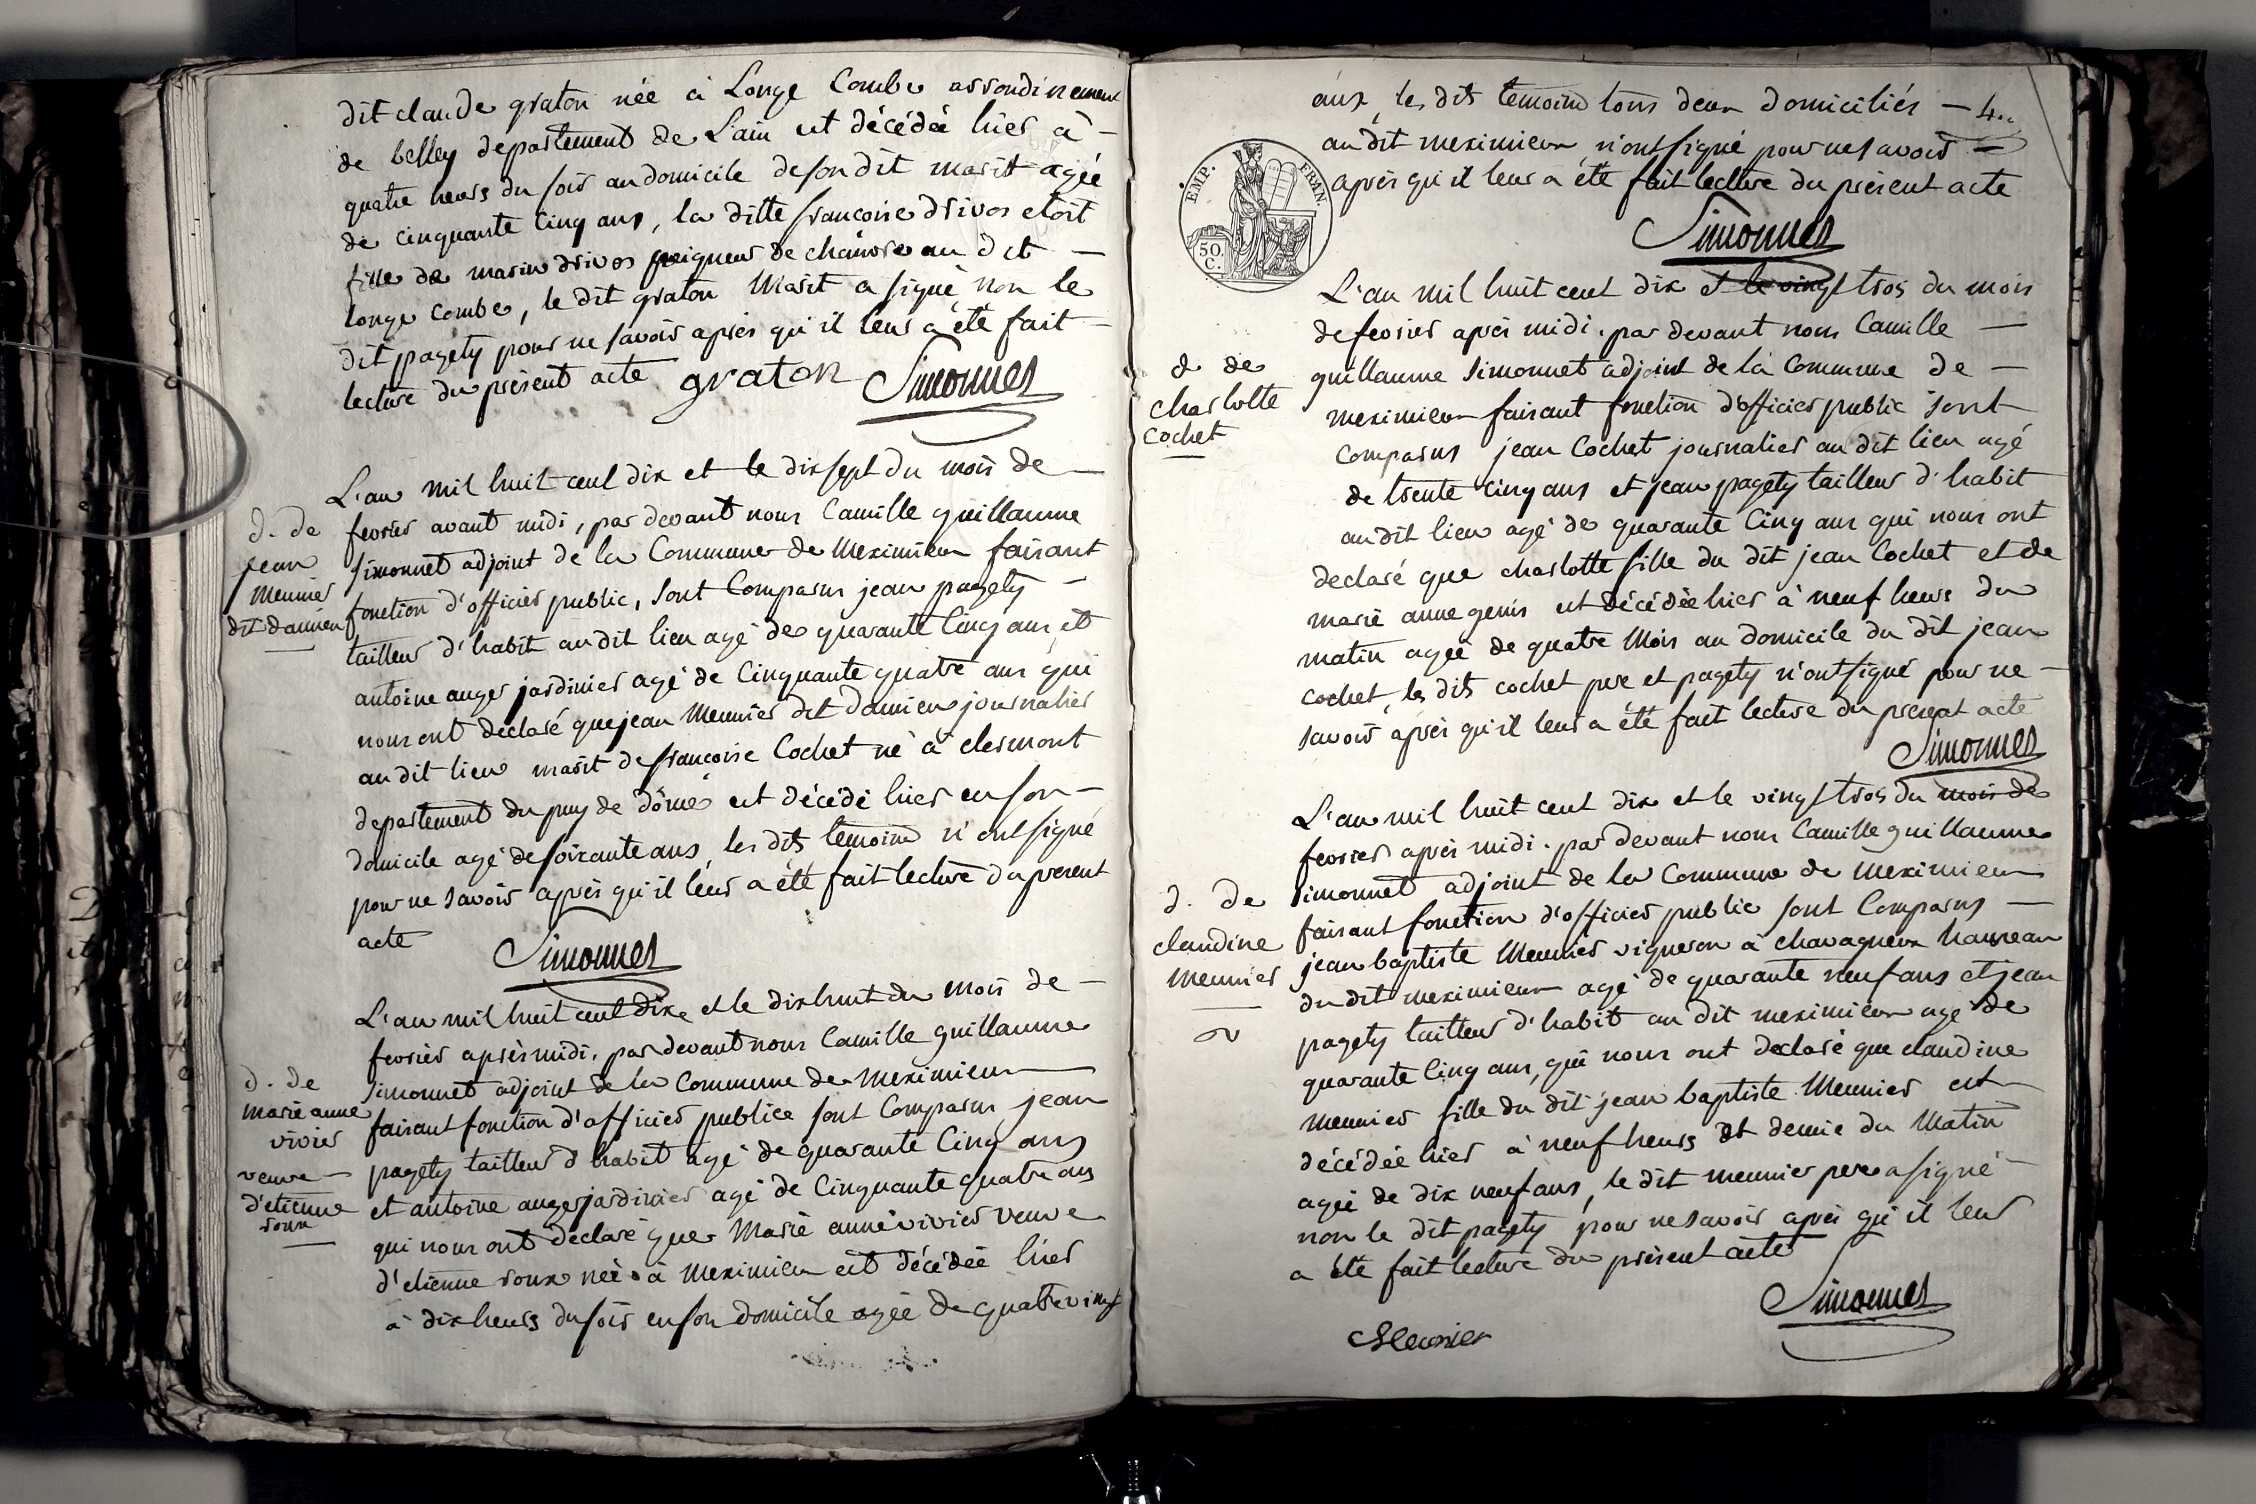 dit claude graton née à Longe Combe arrondissement
de belley departement de L'ain est décédée hier à -
quatre heurs du soir au domicile de son dit marit agée
de cinquante cinq ans, la ditte francoise drivos etoit
fille de marin drivos peigneur de chanvre au dit -
longe combe, le dit graton Marit a signé non le
dit pagety pour ne savoir après qu'il leur a été fait -
lecture du présent acte graton Simonnet
L'an mil huit cent dix et le dix sept du mois de -
d. de
jean
meunier
dit damien
fevrier avant midi, par devant nous Camille guillaume
simonnet adjoint de la Commune de Meximieux faisant
fonction d'officier public, sont Comparus jean pagety -
tailleur d'habit au dit lieu agé de quarante Cinq ans et
antoine auger jardinier agé de Cinquante quatre ans qui
nous ont declaré que jean Meunier dit Damien journalier
au dit lieu marit de francoise Cochet né à clermont
departement du puy de dôme est décédé hier en son -
domicile agé de soixante ans, les dits temoins n'ont signé
pour ne savoir après qu'il leur a été fait lecture du present
acte
Simonnet
L'an mil huit cent dix et le dix huit du mois de -
d. de
marie anne
vivier
veuve
d'etienne
roux
fevrier après midi. par devant nous Camille guillaume
simonnet adjoint de la commune de Meximieux
faisant fonction d'officier publice sont Comparus jean
pagety tailleur d'habit agé de quarante Cinq ans
et antoine auger jardinier agé de Cinquante quatre ans
qui nous ont declaré que Marie anne vivier veuve
d'etienne roux née à meximieu est décédée hier
à dix heurs du soir en son domicile agée de quatre vingt
ans, les dits temoins tous deux domiciliés - 4..
au dit meximieux n'ont signé pour ne savoir -
après qu'il leur a été fait lecture du présent acte
EMP. FRAN.
50.
C.
Simonnet
L'an mil huit cent dix et le vingt trois du mois
d. de
charlotte
cochet
de fevrier après midi. par devant nous Camille -
guillaume simonnet adjoint de la Commune de -
meximieux faisant fonction d'officier public sont
comparus jean Cochet journalier au dit lieu agé
de trente cinq ans et jean pagety tailleur d'habit
au dit lieu agé de quarante Cinq ans qui nous ont
declaré que charlotte fille du dit jean Cochet et de
marie anne genis est décédée hier à neuf heurs du
matin agée de quatre Mois au domicile du dit jean
cochet, les dits cochet pere et pagety n'ont signé pour ne -
savoir après qu'il leur a été fait lecture du présent acte
Simonnet
L'an mil huit cent dix et le vingt trois du mois de
d. de
claudine
meunier
fevrier après midi. par devant nous Camille guillaume
simonnet adjoint de la Commune de meximieux
faisant fonction d'officier public sont Comparus -
jean baptiste Meunier vigneron à chavagneux hameau
du dit meximieux agé de quarante neuf ans et jean
pagety tailleur d'habit au dit meximieux agé de
quarante Cinq ans, qui nous ont declaré que claudine
meunier fille du dit jean baptiste Meunier est
décédée hier à neuf heurs et demie du Matin
agée de dix neuf ans, le dit meunier pere a signé -
non le dit pagety pour ne savoir après qu'il leur
a été fait lecture du présent acte
Simonnet
Meunier